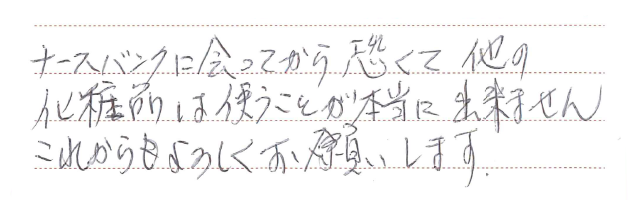 ナースバンクに会ってから恐くて他の
化粧品は使うことが本当に出来ません
これからもよろしくお願いします.